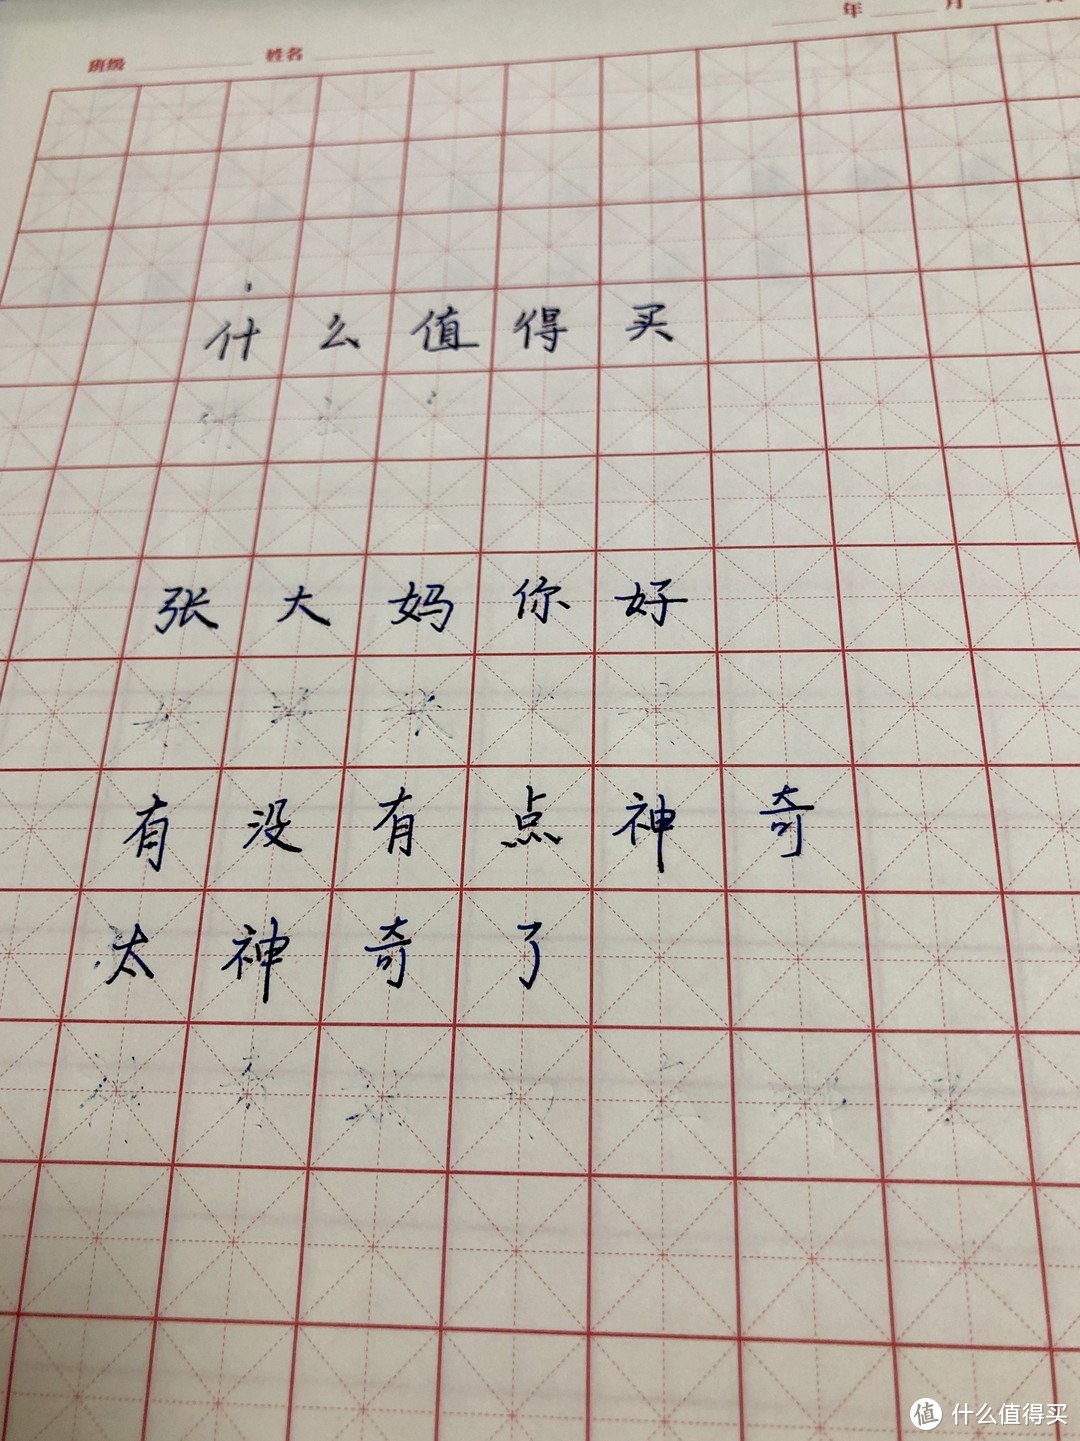 班级 姓名 年 月
什么值得买
张大妈你好
有没有点神奇
太神奇了
值 什么值得买